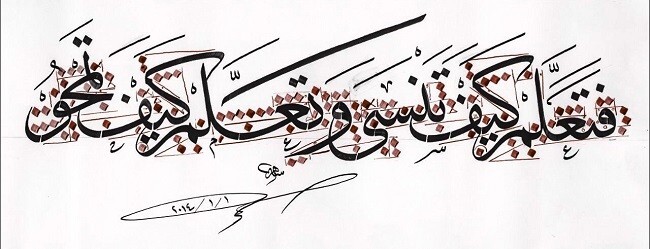 فتعلّم كيف تنسى وتعلّم كيف تمحو
٢٠١٤/١/١